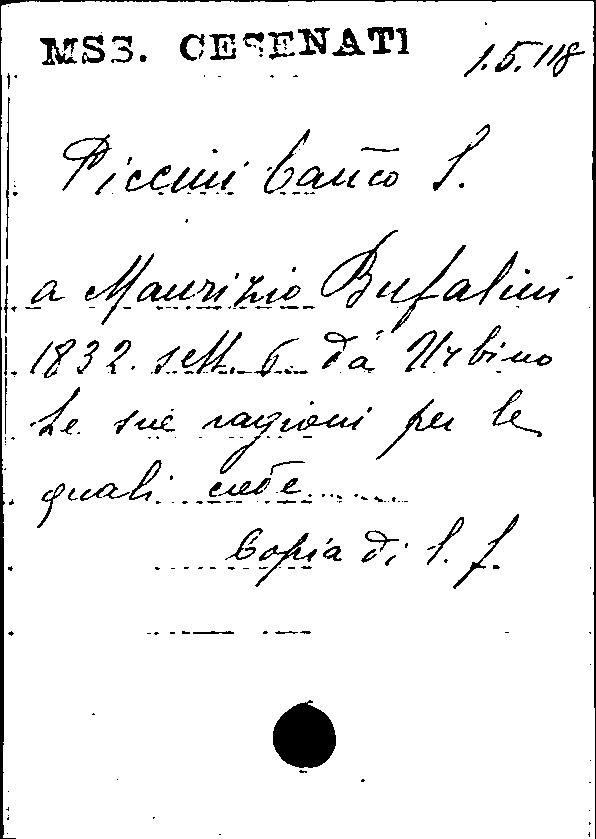 MSS. CESENATI
1.5.118
Piccini
a Maurizio Bufalini
1832. sett. 6. da Urbino
Le sue ragioni per le
quali crede......
Copia di